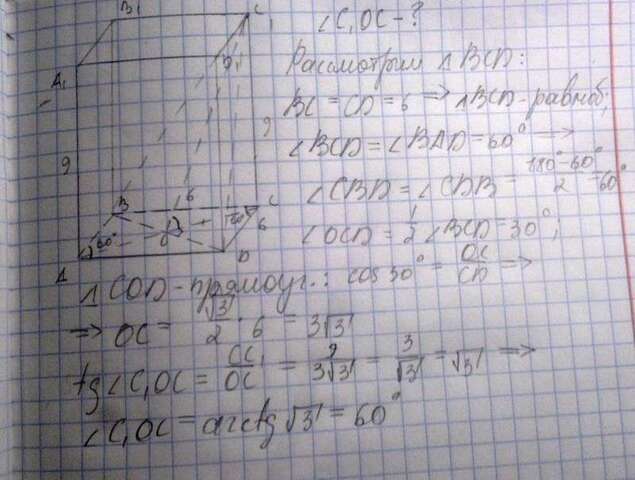 B₁
C₁
A₁
D₁
9
9
B
6
C
60°
60°
6
O
A
D
∠C₁OC - ?
Рассмотрим △BCD:
BC = CD = 6 ⇒ △BCD - равноб;
∠BCD = ∠BAD = 60° ⇒
∠CBD = ∠CDB = (180° - 60°)/2 = 60°
∠OCD = 1/2 ∠BCD = 30°;
△COD - прямоуг.: cos 30° = OC/CD ⇒
⇒ OC = √3/2 · 6 = 3√3
tg ∠C₁OC = CC₁/OC = 9/3√3 = 3/√3 = √3 ⇒
∠C₁OC = arctg √3 = 60°